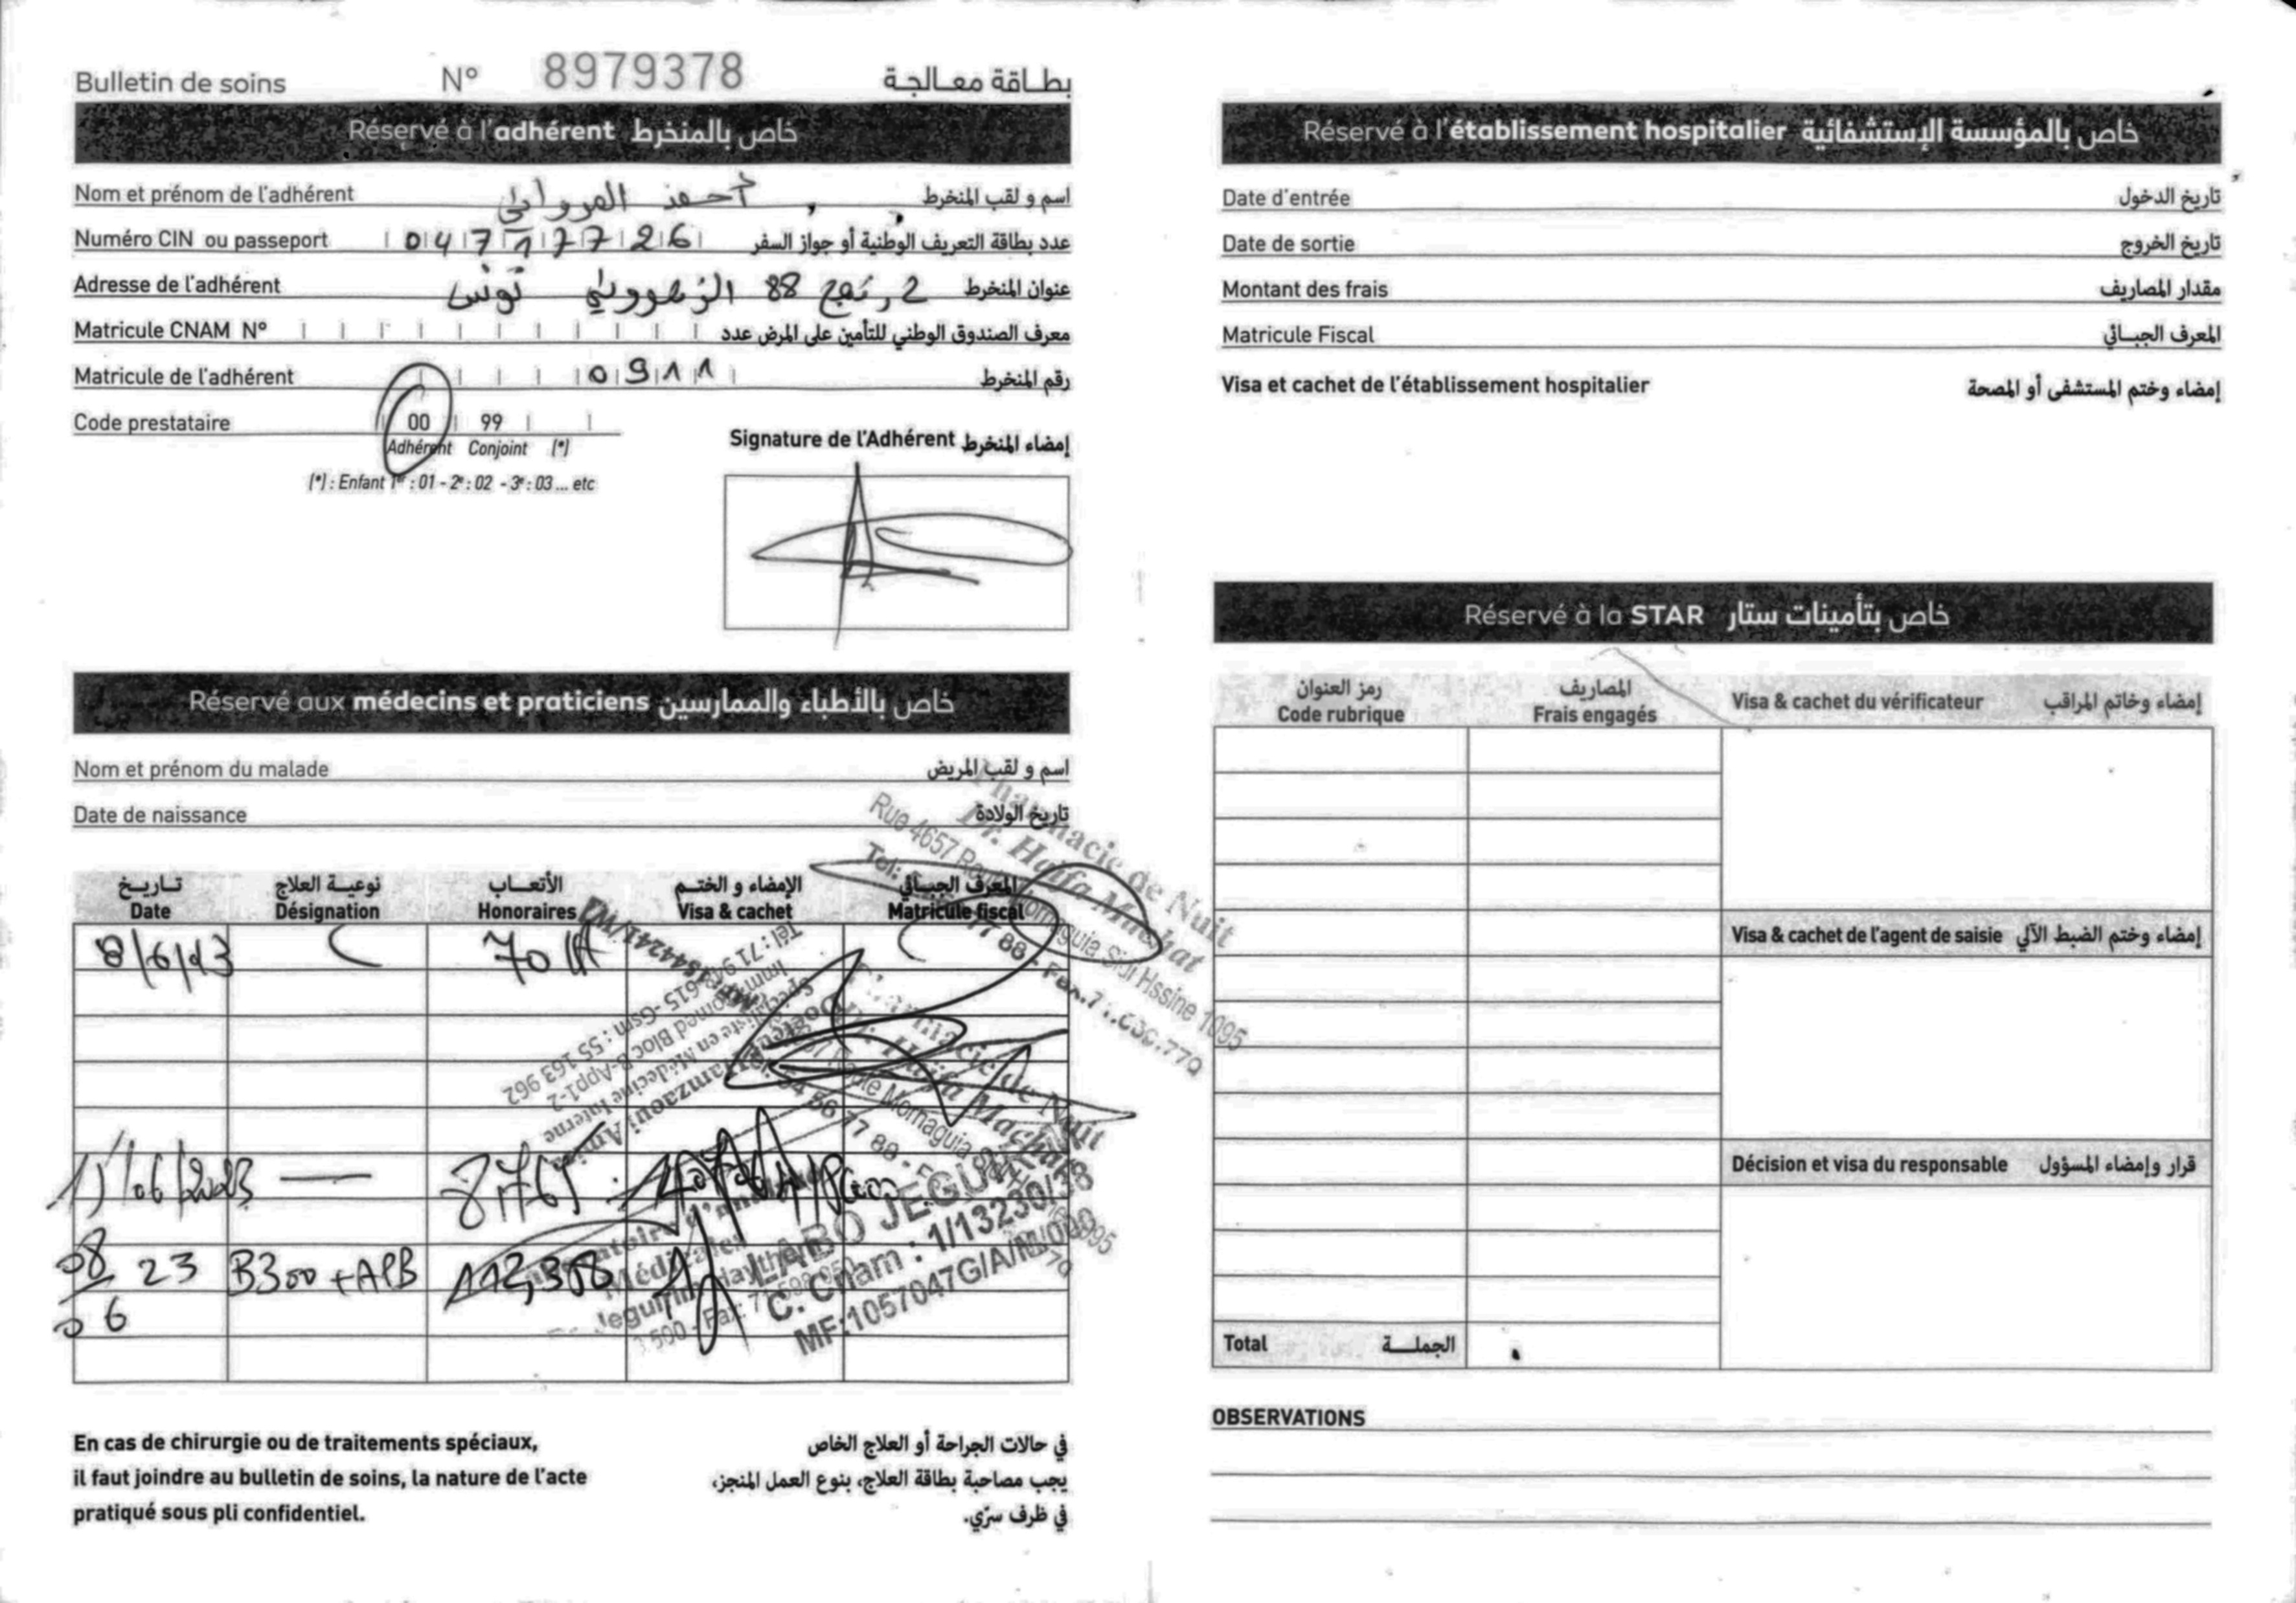 Bulletin de soins N° 8979378 بطاقة معالجة
Réservé à l'adhérent خاص بالمنخرط
Nom et prénom de l'adhérent أحمد المرواني اسم و لقب المنخرط
Numéro CIN ou passeport 04717726 عدد بطاقة التعريف الوطنية أو جواز السفر
Adresse de l'adhérent 2 نهج 88 الزهروني تونس عنوان المنخرط
Matricule CNAM N° معرف الصندوق الوطني للتأمين على المرض عدد
Matricule de l'adhérent 0911 رقم المنخرط
Code prestataire 00 99
Adhérent Conjoint (*)
(*) : Enfant 1er : 01 - 2e : 02 - 3e : 03 ... etc
Signature de l'Adhérent إمضاء المنخرط
Réservé aux médecins et praticiens خاص بالأطباء والممارسين
Nom et prénom du malade اسم و لقب المريض
Date de naissance تاريخ الولادة
تاريخ نوعية العلاج الأتعاب الإمضاء و الختم المعرف الجبائي
Date Désignation Honoraires Visa & cachet Matricule fiscal
8/6/23 C 70
Pharmacie de Nuit
Dr. Haifa Machat
Rue 4657 Route Mornaguia Sidi Hssine 1095
Tél : 71 94 615 - Gsm : 55 163 962
Immomed Bloc B-App1-2
Spécialiste en Médecine Interne
Docteur Hamzaoui Amira
Pharmacie de Nuit
Dr. Haifa Machat
Route Mornaguia
11/06/2023 — 8,765
08/06 23 B300 + APB 112,308
Laboratoire d'analyses
Médicales
LABO JEGUIRIM
C. Cnam : 1/13230/38
MF:1057047G/A/M/000
En cas de chirurgie ou de traitements spéciaux,
il faut joindre au bulletin de soins, la nature de l'acte
pratiqué sous pli confidentiel.
في حالات الجراحة أو العلاج الخاص
يجب مصاحبة بطاقة العلاج، بنوع العمل المنجز،
في ظرف سرّي.
Réservé à l'établissement hospitalier خاص بالمؤسسة الإستشفائية
Date d'entrée تاريخ الدخول
Date de sortie تاريخ الخروج
Montant des frais مقدار المصاريف
Matricule Fiscal المعرف الجبائي
Visa et cachet de l'établissement hospitalier إمضاء وختم المستشفى أو المصحة
Réservé à la STAR خاص بتأمينات ستار
رمز العنوان المصاريف
Code rubrique Frais engagés Visa & cachet du vérificateur إمضاء وخاتم المراقب
Visa & cachet de l'agent de saisie إمضاء وختم الضبط الآلي
Décision et visa du responsable قرار وإمضاء المسؤول
Total الجملة
OBSERVATIONS